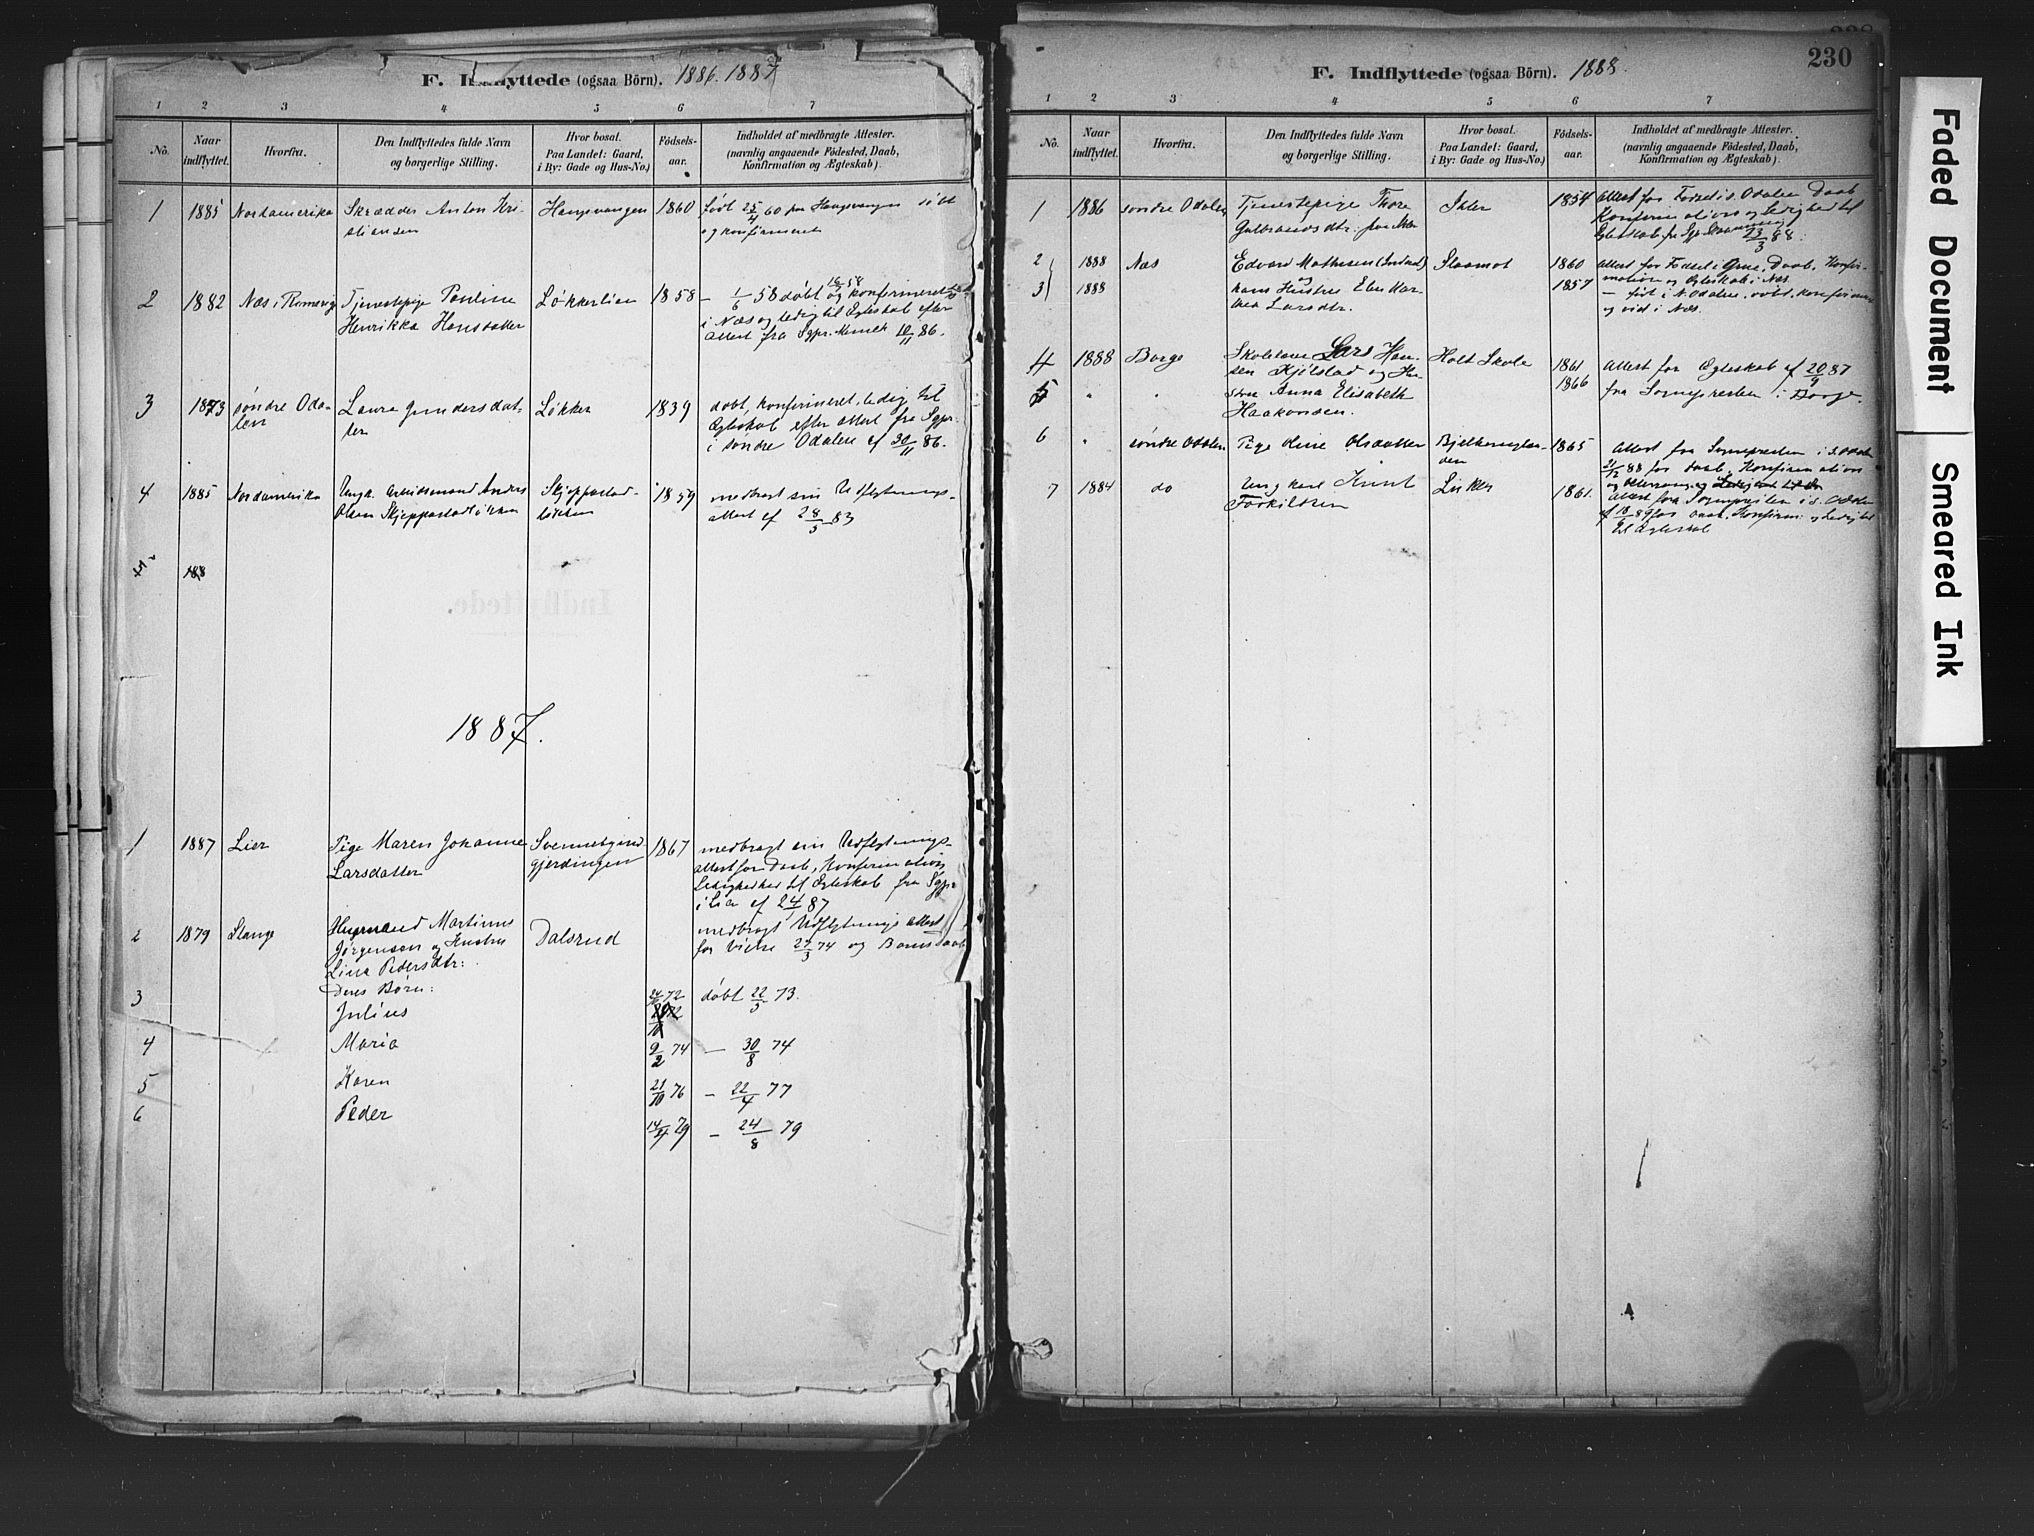 F. Indflyttede (ogsaa Börn). 1886. 1887
1 2 3 4 5 6 7
No.
Naar indflyttet.
Hvorfra.
Den Indflyttedes fulde Navn og borgerlige Stilling.
Hvor bosat. Paa Landet: Gaard, i By: Gade og Hus-No.)
Födsels-aar.
Indholdet af medbragte Attester. (navnlig angaaende Födested, Daab, Konfirmation og Ægteskab)
1 1885 Nordamerika Skrædder Anton Kri- Haugsvangen 1860 født 25/4 60 paa Haugsvangen døbt
stiansen og konfirmeret
2 1882 Næs i Romerige Tjenestepige Pauline Løkkerlien 1858 – 1/6 58 døbt og konfirmeret
Henrikka Hansdatter i Næs og ledig til Ægteskab efter
Attest fra Sgpr. 10/11 86.
3 1873 søndre Oda- Laura Gundersdat- Løkker 1839 døbt, konfirmeret, ledig til
len ter Ægteskab efter Attest fra Sgpr.
i søndre Odalen af 30/11 86.
4 1885 Nordamerika Ungk. Arbeidsmand Anders Skjeppestad- 1859 medbragt sin Udflytnings-
Olsen Skjeppestadløkken løkken attest af 28/3 83
5 188
1887.
1 1887 Lier Pige Maren Johanne 1867 medbragt sin Udflytnings-
Larsdatter gjerdingen attest for Daab, Konfirmation
Ledighed til Ægteskab fra Sgpr
i Lier af 24/ 87
2 1879 Stange Husmand Martinus Dalsrud medbragt Udflytnings attest
Jørgensen og Hustru for Vielse 29/3 74 og Barnedaab
Lina Pedersdtr:
Deres Børn:
3 Julius 72 døbt 22/3 73.
4 Maria 9/2 74 – 30/8 74
5 Karen 21/10 76 – 22/4 77
6 Peder 79 – 24/8 79
230
F. Indflyttede (ogsaa Börn). 1888.
1 2 3 4 5 6 7
No.
Naar indflyttet.
Hvorfra.
Den Indflyttedes fulde Navn og borgerlige Stilling.
Hvor bosat. Paa Landet: Gaard, i By: Gade og Hus-No.)
Födsels-aar.
Indholdet af medbragte Attester. (navnlig angaaende Födested, Daab, Konfirmation og Ægteskab)
1 1886 søndre Odalen Tjenestepige Thore 1854 Attest for Fødsel i s. Odalen Daab
Gulbrandsdtr. Konfirmation og Ledighed til
Ægteskab fra Sgpr 23/3 88.
2 1888 Næs Edvard Mathisen Slaamot 1860 Attest for Fødsel i Grue, Daab, Konfir-
og mation og Ægteskab i Næs
3 1888 hans Hustru 1857 – født i N. Odalen, døbt, konfirmeret
Larsdtr. og viet i Næs.
4 1888 Borge Skolelærer Lars Han- Holt Skole 1861 Attest for Ægteskab af 20/9 87
sen Kjølstad og Hu- 1866 fra Sognepresten i Borge.
5 " " stru Anna Elisabeth
Haakonsen.
6 " søndre Odalen Pige Oline Olsdatter 1865 Attest fra Sognepresten i s. Odalen
88 for Daab, Konfirmation
7 1884 do Ungkarl Knut Løkker 1861. Attest fra Sognepresten i s. Odalen
Torkildsen af 18/ 89 for Daab, Konfirm. og Ledighed
til Ægteskab
Faded Document
Smeared Ink